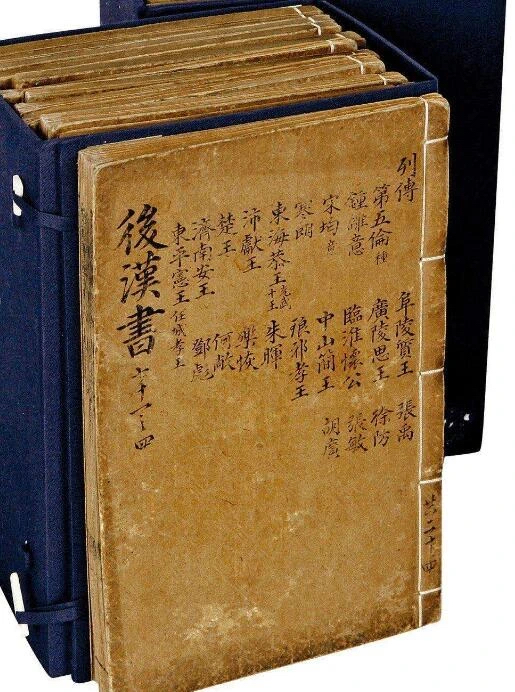 列傳 阜陵質王 張禹
第五倫 種 廣陵思王 徐防
鍾離意 臨淮懷公 張敏
宋均 意 中山簡王 胡廣
寒朗 琅邪孝王
東海恭王 光武十王 朱暉
沛獻王 樂恢
楚王 何敞
濟南安王 鄧彪
東平憲王 任城孝王
後漢書 十一之四
共二十四